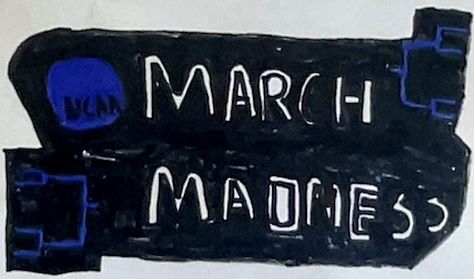 NCAA
MARCH
MADNESS